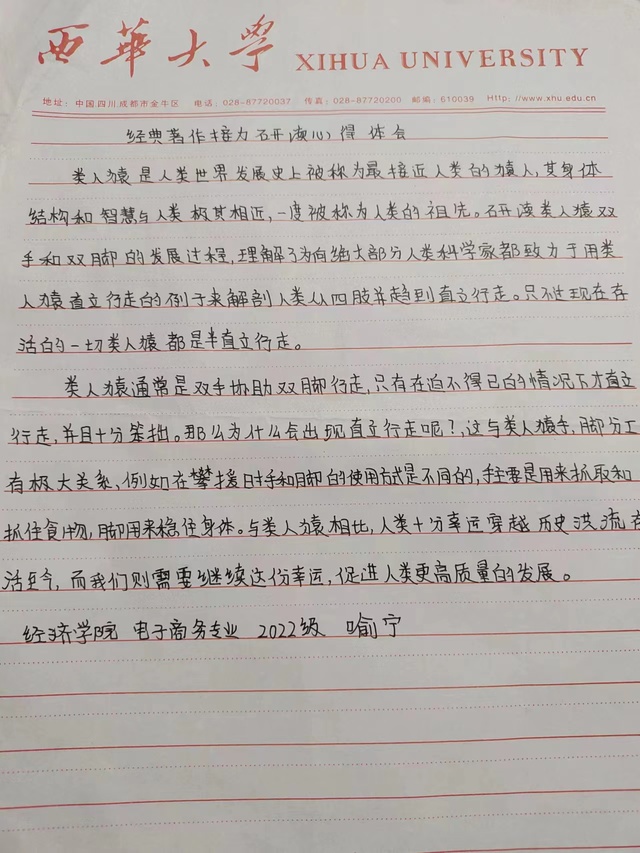 西華大学 XIHUA UNIVERSITY
地址:中国四川成都市金牛区 电话:028-87720037 传真:028-87720200 邮编:610039 Http://www.xhu.edu.cn
经典著作接力研读心得体会
类人猿是人类世界发展史上被称为最接近人类的猿人,其身体
结构和智慧与人类极其相近,一度被称为人类的祖先。研读类人猿双
手和双脚的发展过程,理解了为何绝大部分人类科学家都致力于用类
人猿直立行走的例子来解剖人类从四肢并趋到直立行走。只不过现在存
活的一切类人猿都是半直立行走。
类人猿通常是双手协助双脚行走,只有在迫不得已的情况下才直立
行走,并且十分笨拙。那么为什么会出现直立行走呢?,这与类人猿手,脚分工
有极大关系、例如在攀援时手和脚的使用方式是不同的,手主要是用来抓取和
抓住食物,脚用来稳住身体。与类人猿相比,人类十分幸运穿越历史洪流存
活至今,而我们则需要继续这份幸运,促进人类更高质量的发展。
经济学院 电子商务专业 2022级 喻宁